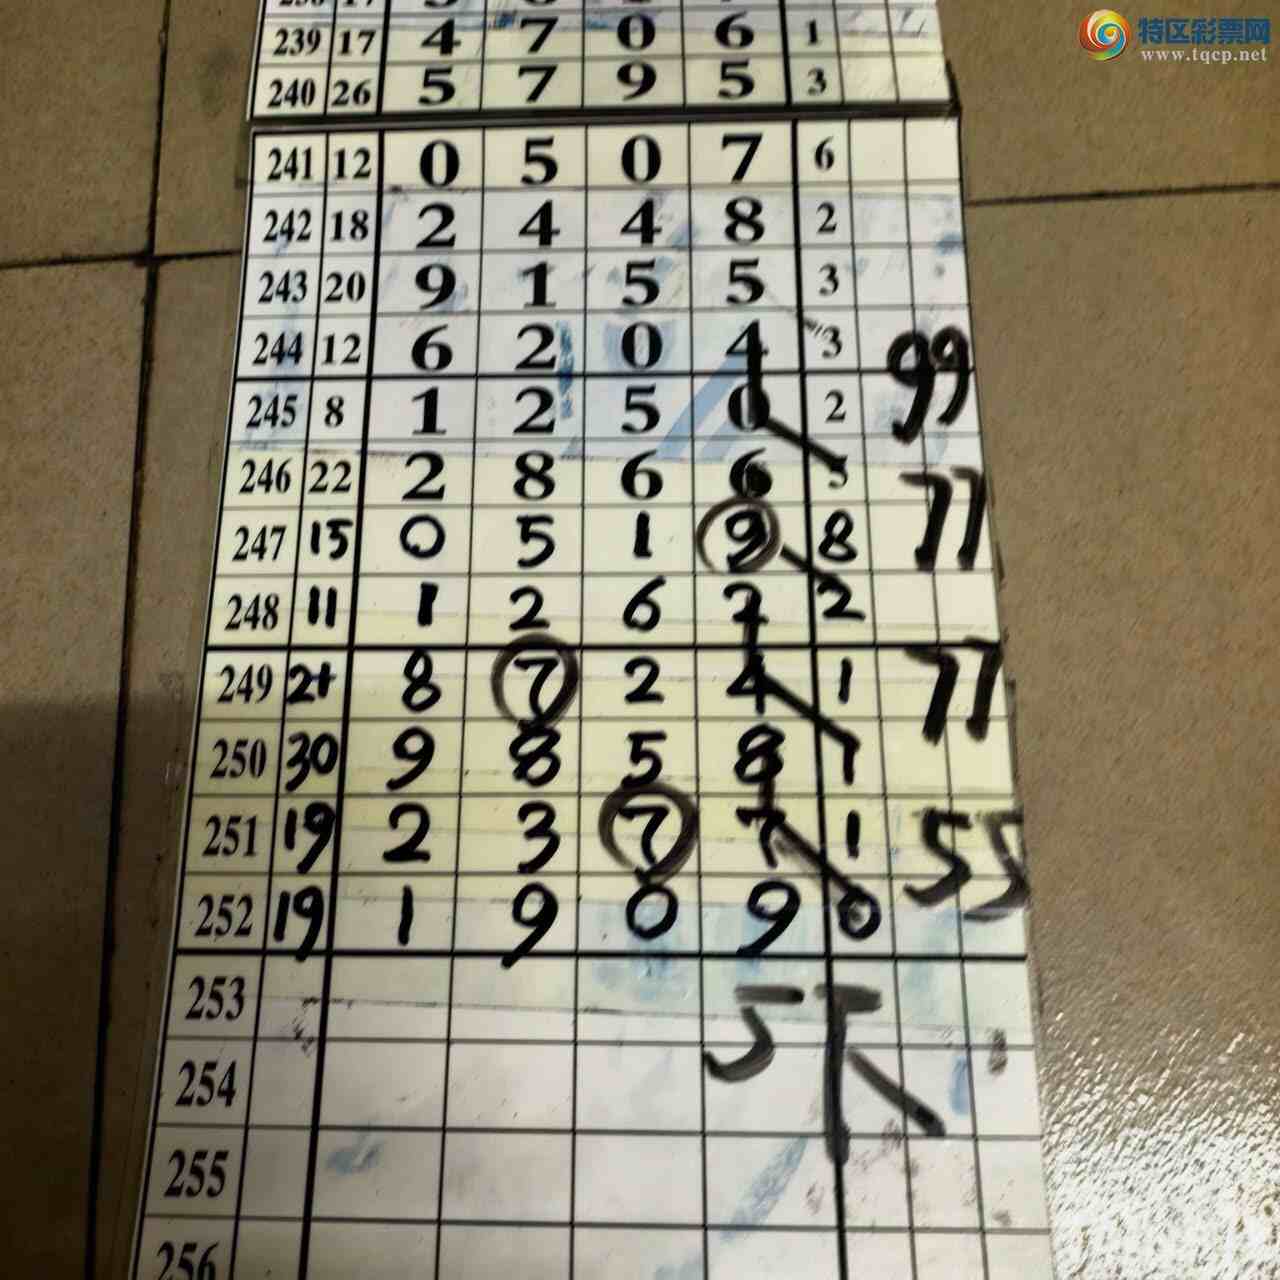 特区彩票网
www.tqcp.net
239 17 4 7 0 6 1
240 26 5 7 9 5 3
241 12 0 5 0 7 6
242 18 2 4 4 8 2
243 20 9 1 5 5 3
244 12 6 2 0 4 3
99
245 8 1 2 5 0 2
246 22 2 8 6 6 5
77
247 15 0 5 1 9 8
248 11 1 2 6 2 2
249 21 8 7 2 4 1
77
250 30 9 8 5 8 7
251 19 2 3 7 7 1
55
252 19 1 9 0 9 0
253
5下
254
255
256